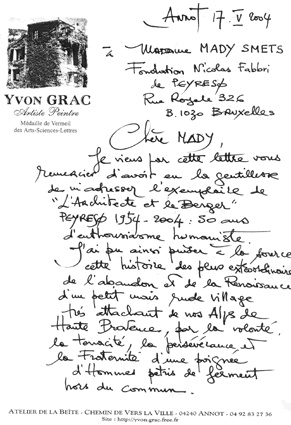 YVON GRAC
Artiste Peintre
Médaille de Vermeil
des Arts-Sciences-Lettres
ANNOT 17. V 2004
à Madame MADY SMETS
Fondation Nicolas Fabbri
de PEYRESQ
Rue Royale 326
B. 1030 BRUXELLES
Chère MADY,
Je viens par cette lettre vous
remercier d'avoir eu la gentillesse
de m'adresser l'exemplaire de
"L'Architecte et le Berger"
PEYRESQ 1954-2004: 50 ans
d'enthousiasme humaniste.
J'ai pu ainsi puiser à la source
cette histoire des plus extraordinaires
de l'abandon et de la Renaissance
d'un petit mais rude village
très attachant de nos Alpes de
Haute Provence, par la volonté,
la tenacité, la persévérance et
la Fraternité d'une poignée
d'Hommes pétris de ferment
hors du commun.
ATELIER DE LA BEÏTE - CHEMIN DE VERS LA VILLE - 04240 ANNOT - 04 92 83 27 36
Site : http://yvon.grac.free.fr